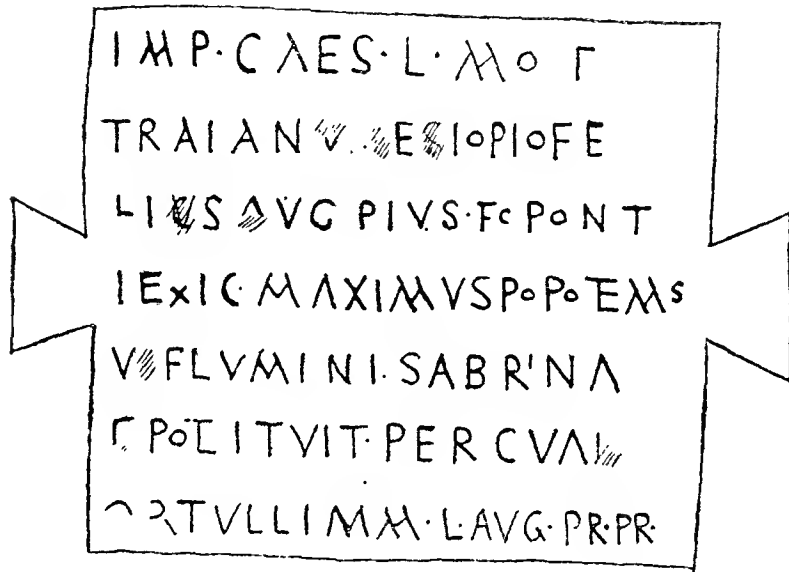 IMP·CAES·L·MOΓ
TRAIANV ES IOPIOFE
LI S AVG PIVS·Fc PoNT
IExIC·MAXIMVSPoPoTEMs
V FLVMINI·SABRINA
Γ·PoTITVIT·PERCVAL
RTVLLIMM·L·AVG·PR·PR·